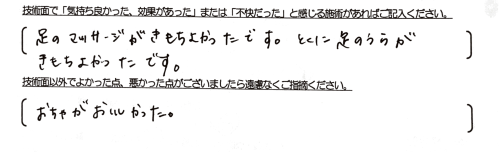 技術面で「気持ち良かった、効果があった」または「不快だった」と感じる施術があればご記入ください。
足のマッサージがきもちよかったです。とくに足のうらが
きもちよかったです。
技術面以外でよかった点、悪かった点がございましたら遠慮なくご指摘ください。
おちゃがおいしかった。